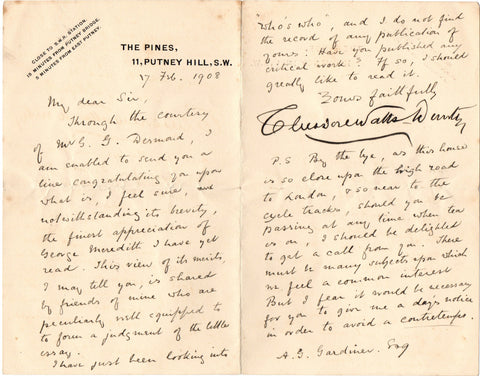 CLOSE TO S.W.R. STATION.
15 MINUTES FROM PUTNEY BRIDGE.
5 MINUTES FROM EAST PUTNEY.
THE PINES,
11, PUTNEY HILL, S.W.
17 Feb. 1908
My dear Sir,
Through the courtesy
of Mr G. G. Desmond, I
am enabled to send you a
line congratulating you upon
what is, I feel sure, and
notwithstanding its brevity,
the finest appreciation of
George Meredith I have yet
read. This view of its merits,
I may tell you, is shared
by friends of mine who are
peculiarly well equipped to
to form a judgment of the little
essay.
I have just been looking into
"Who's who", and I do not find
the record of any publication of
yours: Have you published any
critical work? If so, I should
greatly like to read it.
Yours faithfully
Theodore Watts-Dunton
P.S By the bye, as this house
is so close upon the high road
to London, & so near to the
cycle tracks, should you be
passing at any time when tea
is on, I should be delighted
to get a call from you. There
must be many subjects upon which
we feel a common interest
But I fear it would be necessary
for you to give me a day's notice
in order to avoid a contretemps.
A. G. Gardiner. Esq